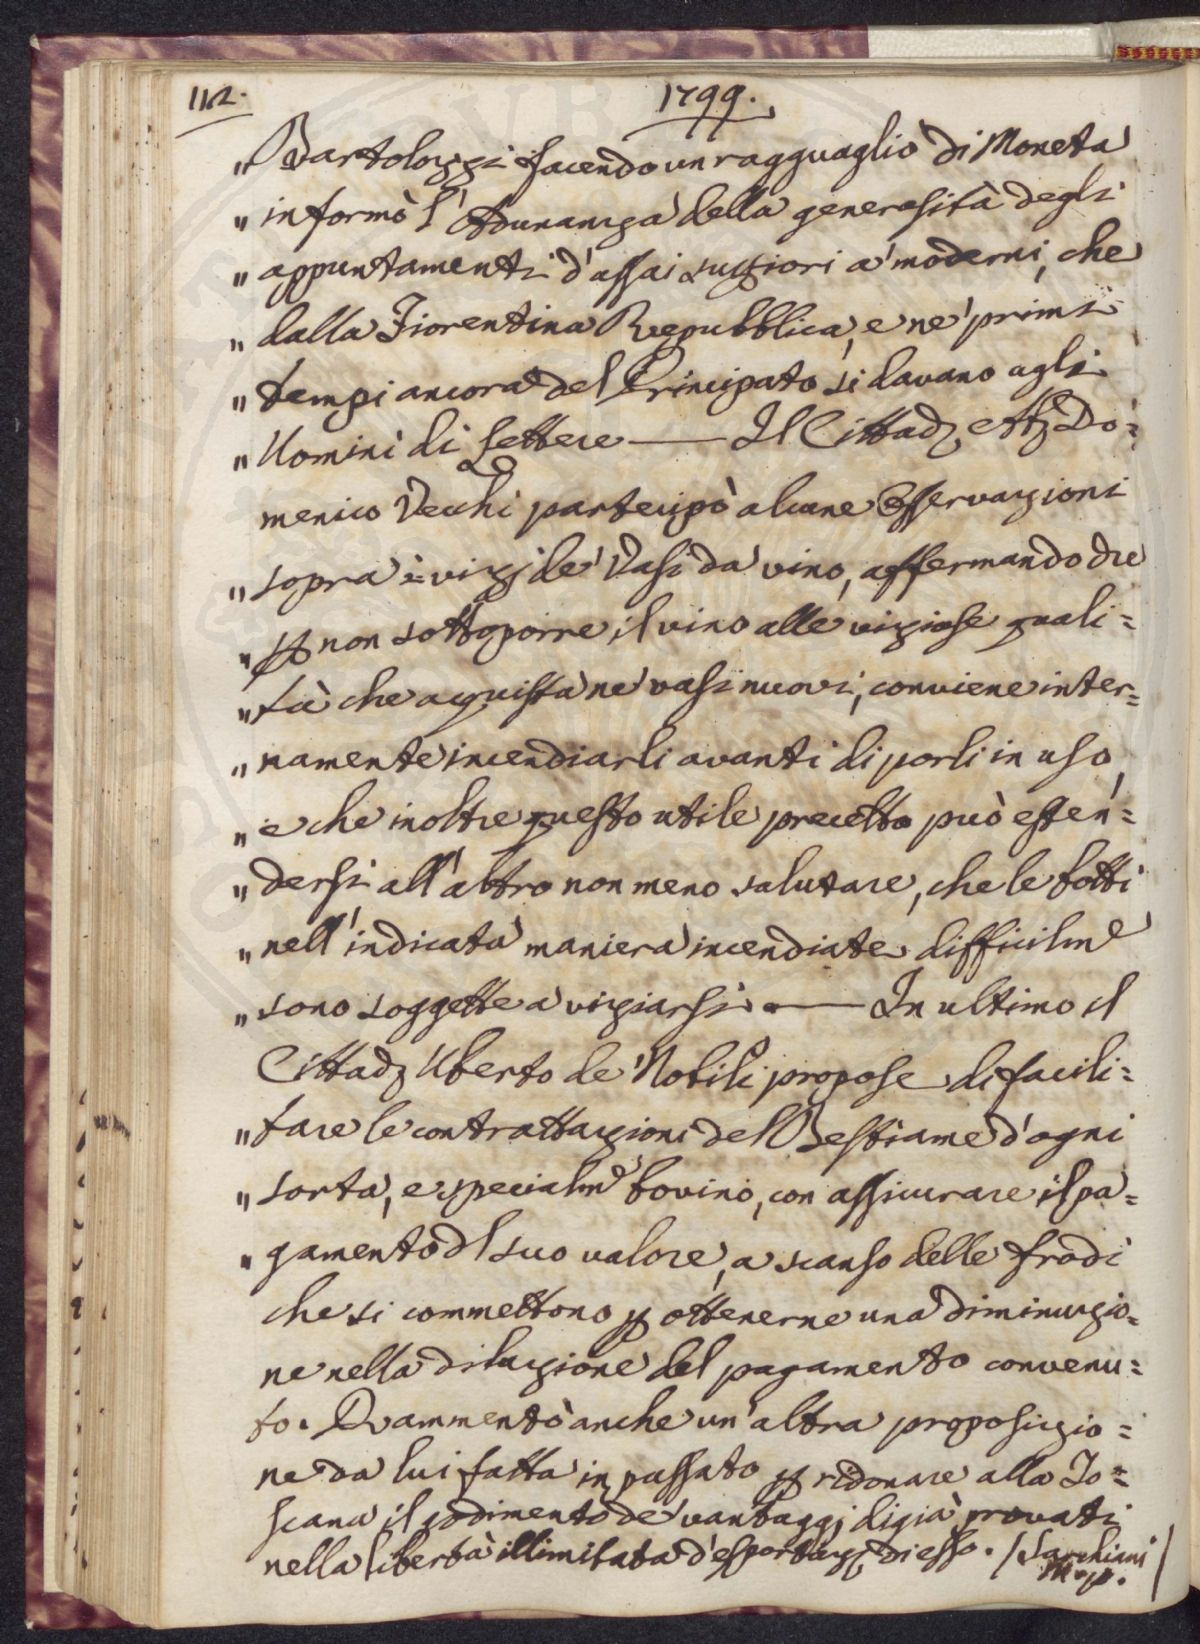 112.
1799.
" Bartolozzi facendo un ragguaglio di Moneta
" informò l' Adunanza della generosità degli
" appuntamenti d'assai supiori a' moderni, che
" dalla Fiorentina Repubblica, e ne' primi
" tempi ancora del Principato si davano agli
" Uomini di Lettere — Il Cittad. Do=
menico Vecchi partecipò alcune Osservazioni
" sopra i vizj de' Vasi da vino, affermando che
" p non sottoporre il vino alle viziose quali=
" tà che acquista ne' vasi nuovi, conviene inter=
" namente incendiarli avanti di porli in uso,
" e che inoltre questo utile precetto può esten=
" dersi all' altro non meno salutare, che le botti
" nell' indicata maniera incendiate difficilme
" sono soggette a viziarsi — In ultimo il
Cittad. Uberto de' Nobili propose di facili=
" tare le contrattazioni del Bestiame d'ogni
" sorta, e specialme bovino, con assicurare il pa=
" gamento dl suo valore, a scanso delle frodi
che si commettono p ottenerne una diminuzio=
ne nella dilazione del pagamento convenu=
to. Rammentò anche un' altra proposizio=
ne da lui fatta in passato p ridonare alla To=
scana il godimento de' vantaggj di già provati
nella libertà illimitata d'esportaz. di esso. / Sarchiani
Mp. /